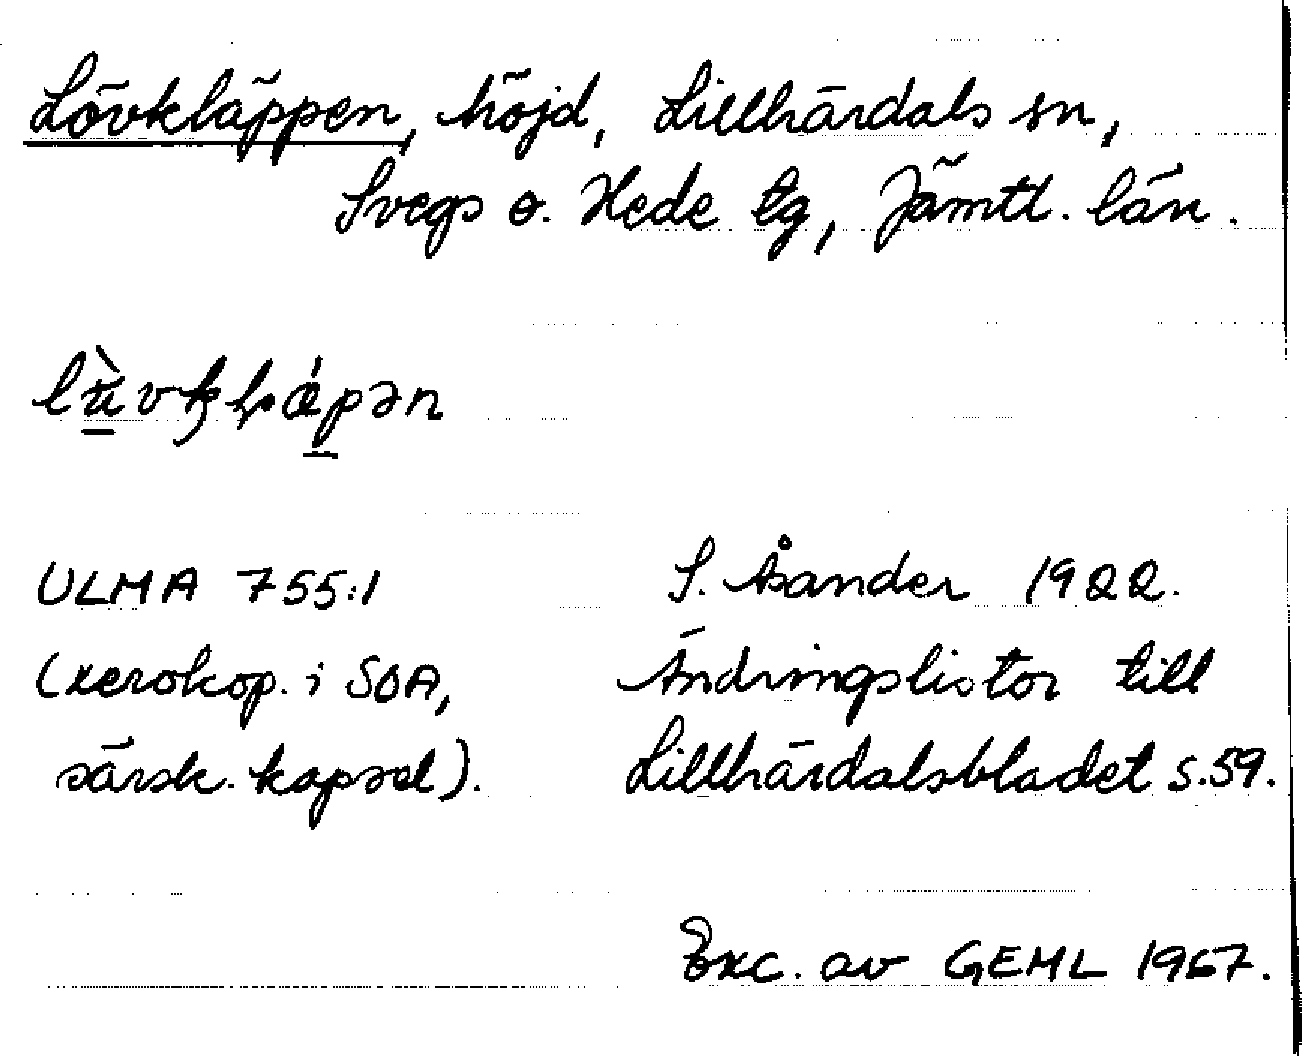 Lövkläppen, höjd, Lillhärdals sn,
Svegs o. Hede tg, Jämtl. län.
ULMA 755:1
S. Åsander 1922.
(xerokop. i SOA,
Ändringslistor till
särsk. kapsel).
Lillhärdalsbladet s.59.
Exc. av GEML 1967.